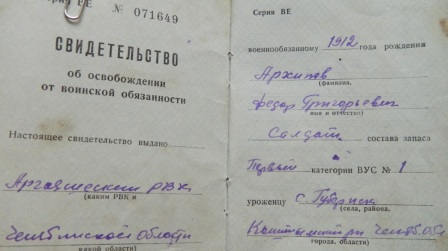 Серия РЕ № 071649
СВИДЕТЕЛЬСТВО
об освобождении
от воинской обязанности
Настоящее свидетельство выдано
Аргаяшским РВК
(каким РВК и
Челябинской области
какой области)
Серия ВЕ
военнообязанному 1912 года рождения
Архипов
(фамилия,
Федор Григорьевич
имя и отчество)
Солдат состава запаса
Первой категории ВУС № 1
уроженцу с. Губернск
(села, района,
Кыштымский р-н Челяб. обл
города, области)